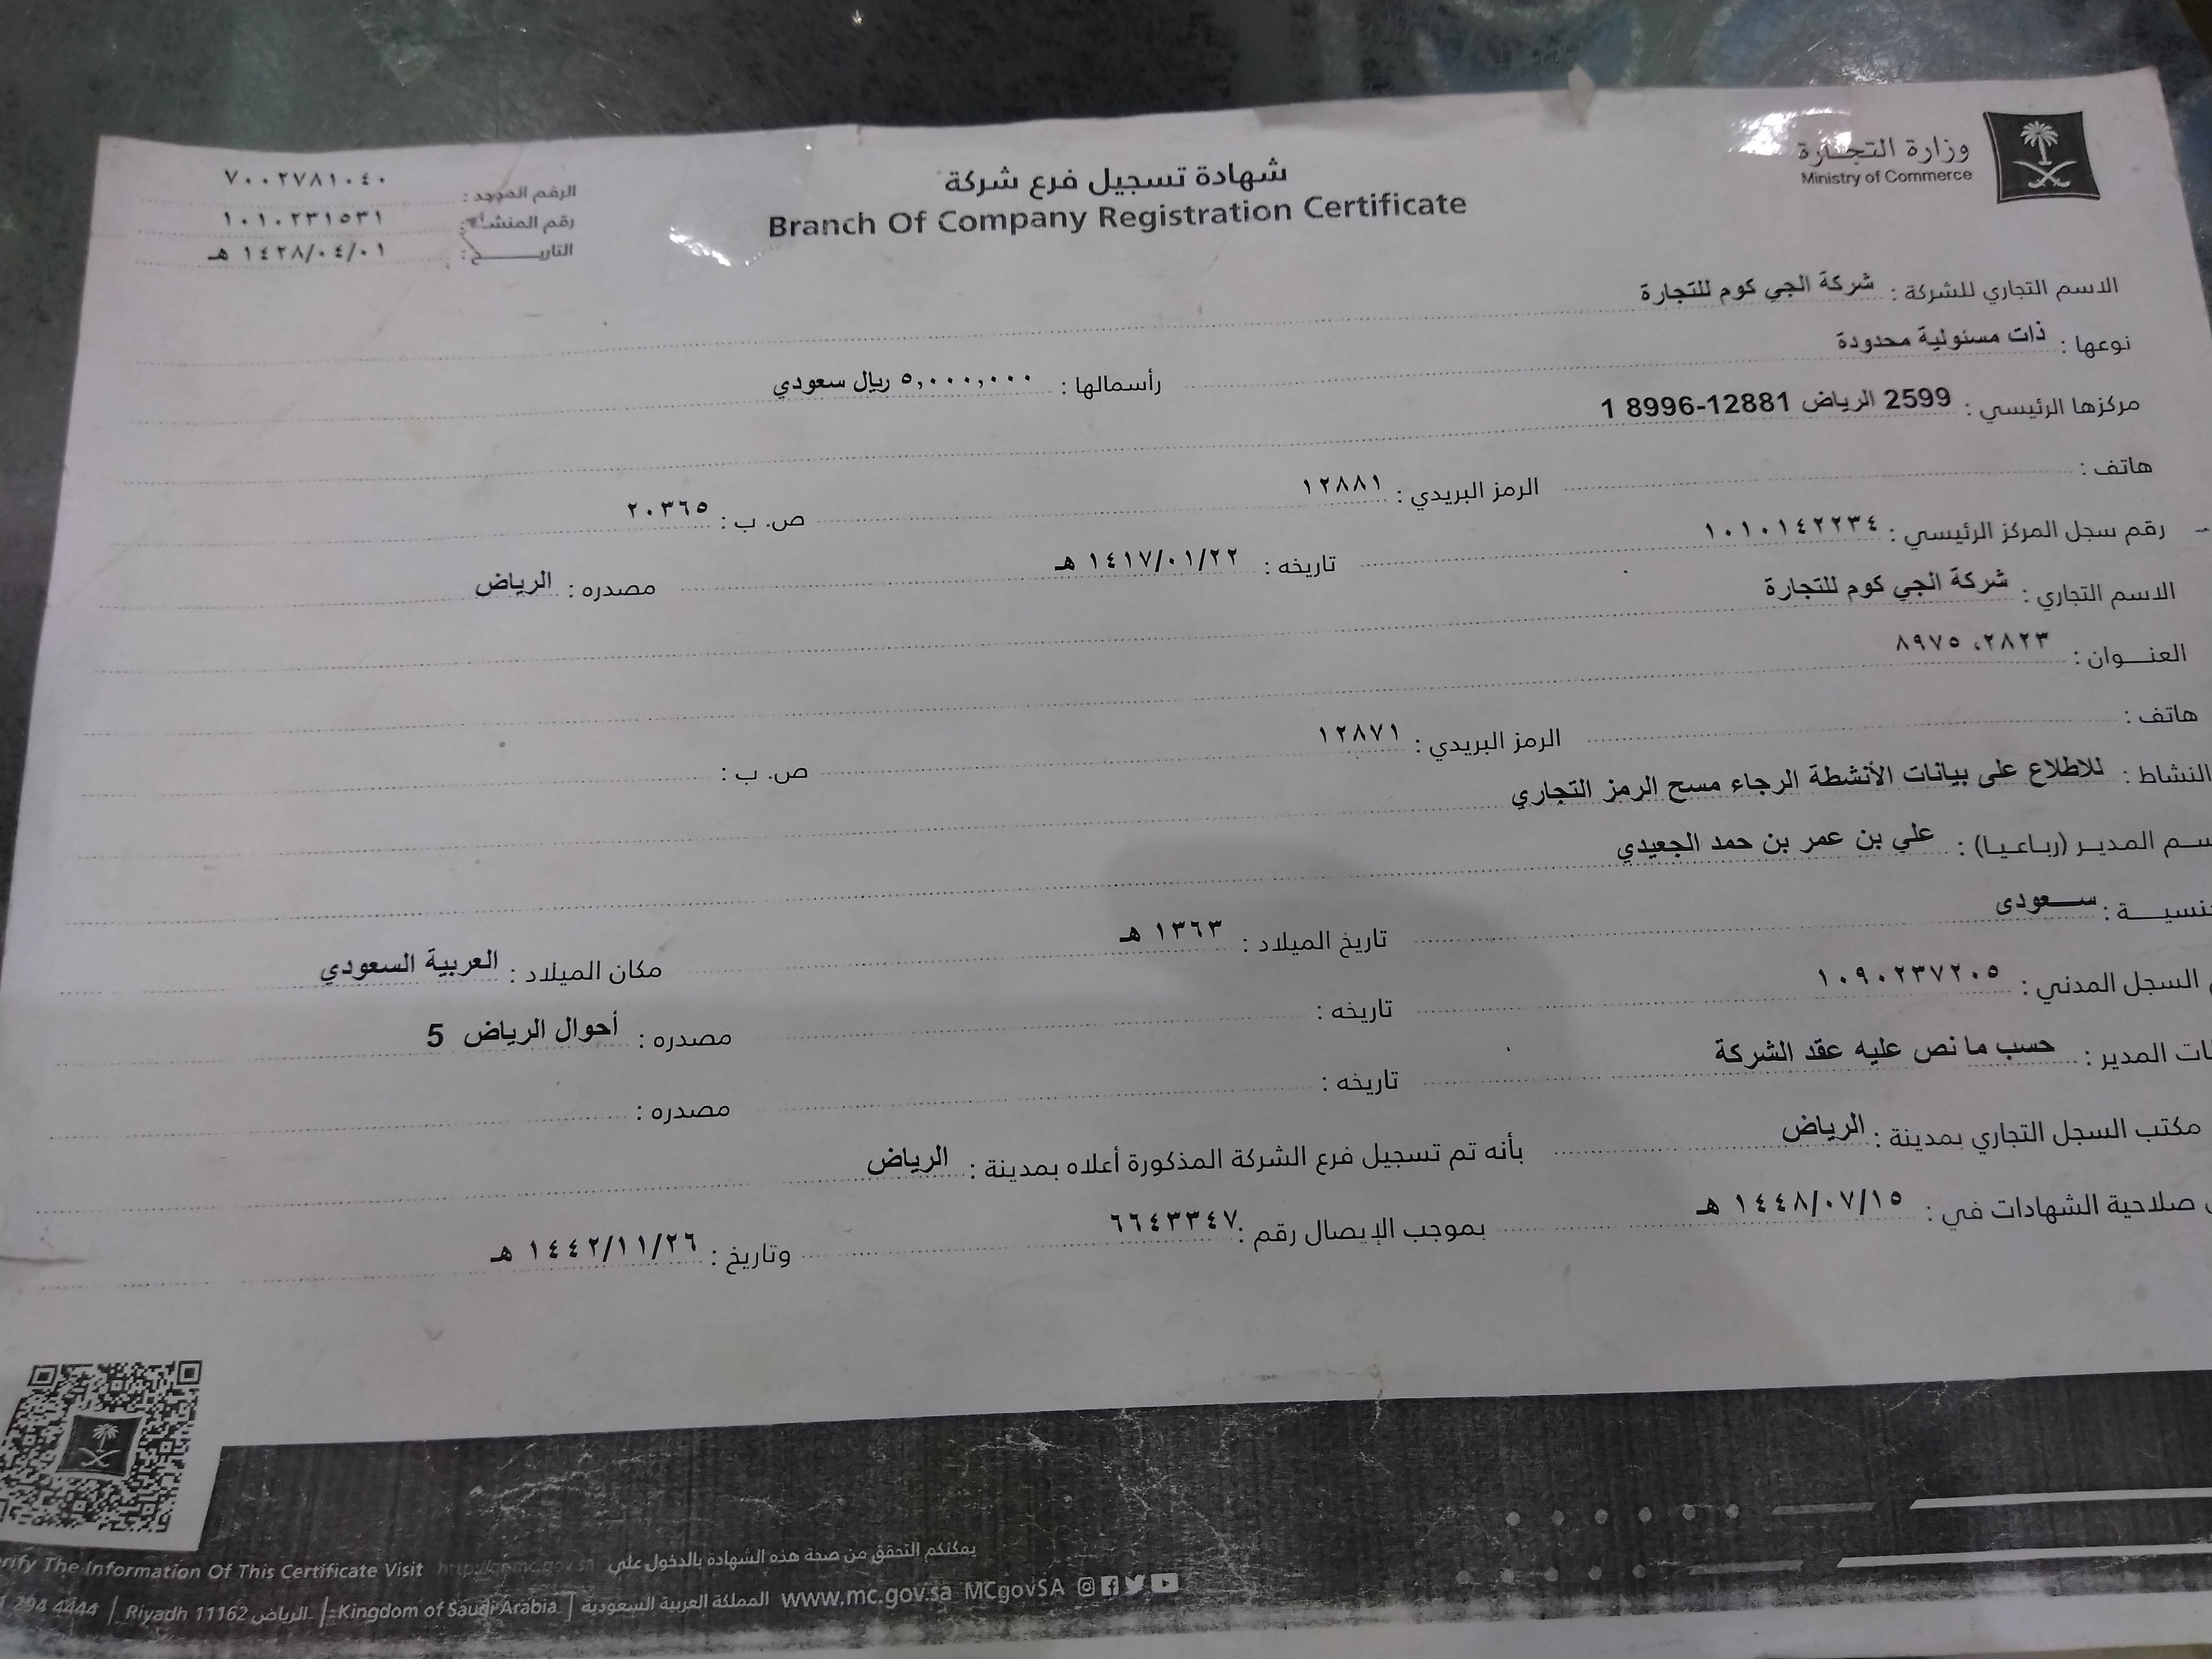 وزارة التجـارة
Ministry of Commerce
شهادة تسجيل فرع شركة
Branch Of Company Registration Certificate
الرقم الموحد : ٧٠٠٢٧٨١٠٤٠
رقم المنشأة: ١٠١٠٢٣١٥٣١
التاريـــــــخ : ١٤٢٨/٠٤/٠١ هـ
الاسم التجاري للشركة : شركة الجي كوم للتجارة
نوعها : ذات مسئولية محدودة رأسمالها : ٥,٠٠٠,٠٠٠ ريال سعودي
مركزها الرئيسي : 2599 الرياض 12881-8996 1
هاتف : الرمز البريدي : ١٢٨٨١ ص. ب : ٢٠٣٦٥
رقم سجل المركز الرئيسي : ١٠١٠١٤٢٢٣٤ تاريخه : ١٤١٧/٠١/٢٢ هـ مصدره : الرياض
الاسم التجاري : شركة الجي كوم للتجارة
العنـــوان : ٢٨٢٣، ٨٩٧٥
هاتف : الرمز البريدي : ١٢٨٧١ ص. ب :
النشاط : للاطلاع على بيانات الأنشطة الرجاء مسح الرمز التجاري
ـســم المديـر (رباعيـا) : علي بن عمر بن حمد الجعيدي
ـنسيـــة : ســـعودى تاريخ الميلاد : ١٣٦٣ هـ مكان الميلاد : العربية السعودي
السجل المدني : ١٠٩٠٢٣٧٢٠٥ تاريخه : مصدره : أحوال الرياض 5
ـات المدير : حسب ما نص عليه عقد الشركة تاريخه : مصدره :
مكتب السجل التجاري بمدينة : الرياض بأنه تم تسجيل فرع الشركة المذكورة أعلاه بمدينة : الرياض
صلاحية الشهادات في : ١٤٤٨/٠٧/١٥ هـ بموجب الإيصال رقم : ٦٦٤٣٣٤٧ وتاريخ : ١٤٤٢/١١/٢٦ هـ
rify The Information Of This Certificate Visit http://qr.mc.gov.sa يمكنكم التحقق من صحة هذه الشهادة بالدخول على
1 294 4444 | Riyadh 11162 الرياض | Kingdom of Saudi Arabia | المملكة العربية السعودية www.mc.gov.sa MCgovSA